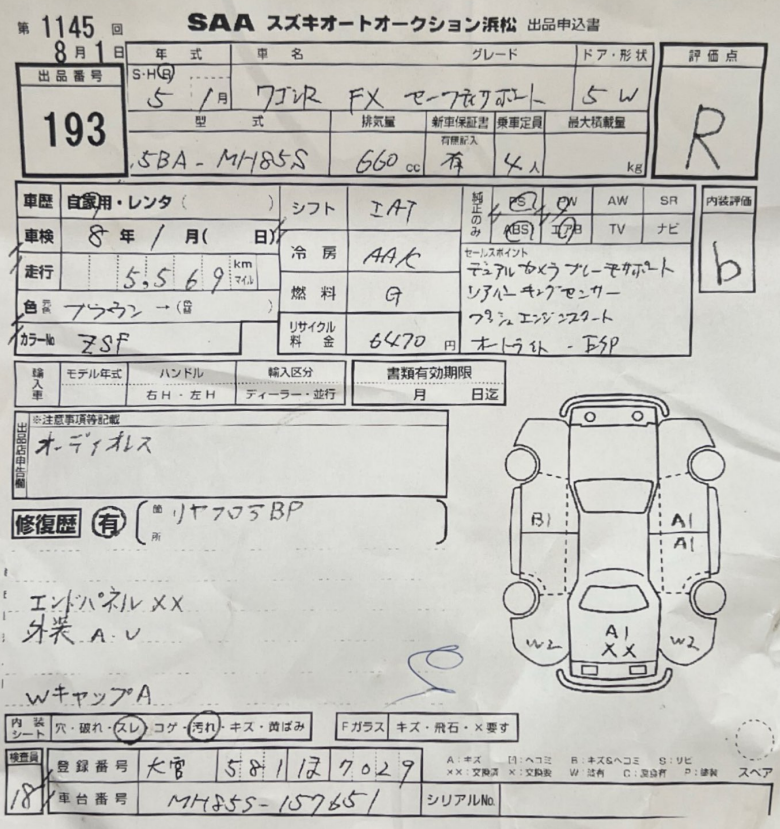 第 1145 回
8月1日
SAA スズキオートオークション浜松 出品申込書
出品番号
193
年式 車名 グレード ドア・形状
S・H・R 5 1月 ワゴンR FX セーフティサポート 5 W
型式 排気量 新車保証書 乗車定員 最大積載量
有無記入
5BA-MH85S 660 cc 有 4人 kg
評価点
R
車歴 自家用・レンタ( )
車検 8年1月( 日)
走行 5,569 km マイル
色 元色 ブラウン →(色替 )
カラーNo ZSF
シフト IAT
冷房 AAC
燃料 G
リサイクル料金 6470円
純正のみ
PS PW AW SR
ABS エアB TV ナビ
セールスポイント
デュアルカメラブレーキサポート
リアパーキングセンサー
プッシュエンジンスタート
オートライト・ESP
内装評価
b
輸入車
モデル年式 ハンドル 輸入区分
右H・左H ディーラー・並行
書類有効期限
月 日迄
出品店申告欄
※注意事項等記載
オーディオレス
修復歴 有 箇所 リヤフロアBP
エンドパネルXX
外装 A.U
WキャップA
B1
A1
A1
W2
A1
XX
W2
内装シート 穴・破れ・スレ・コゲ・汚れ・キズ・黄ばみ
Fガラス キズ・飛石・×要す
検査員
18
登録番号 大宮 581 7029
車台番号 MH85S-157651
シリアルNo.
A:キズ B:キズ&ヘコミ
XX:交換済 X:交換
スペア